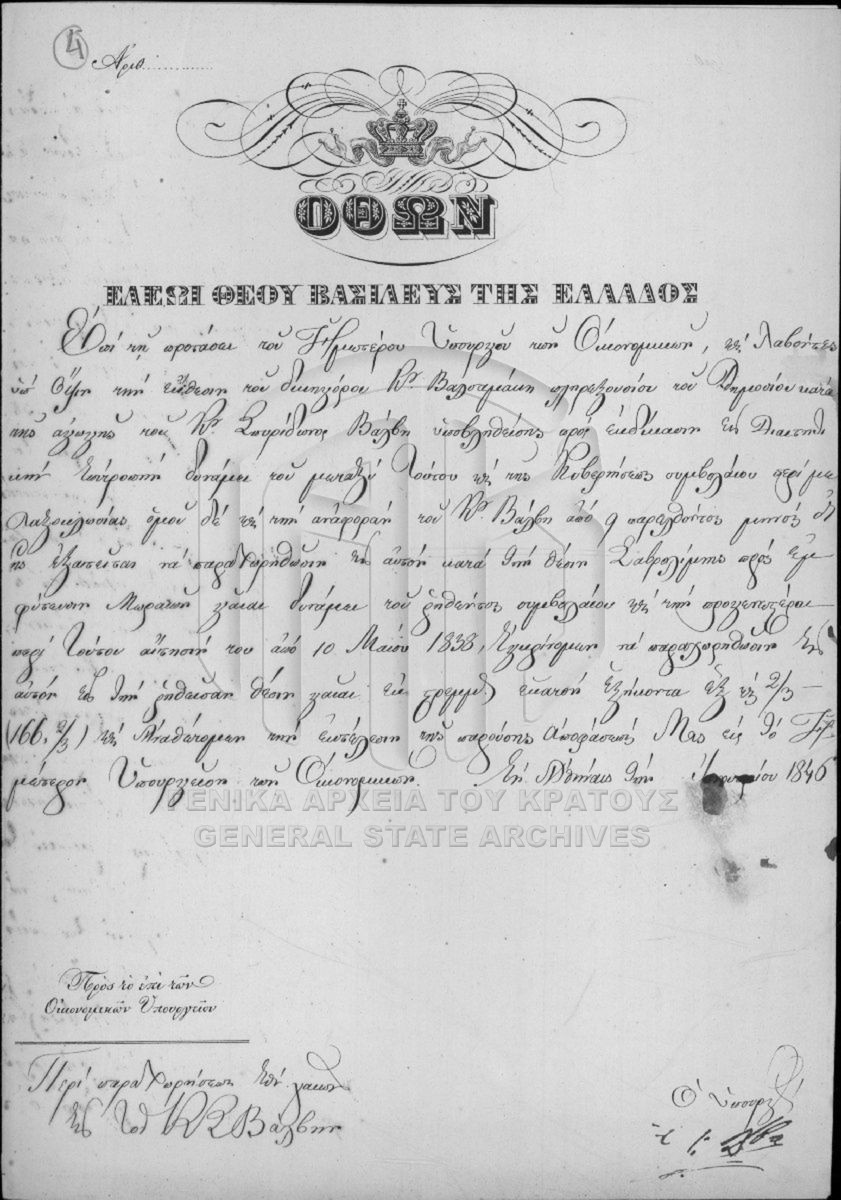 4
Αριθ.
ΟΘΩΝ
ΕΛΕΩΙ ΘΕΟΥ ΒΑΣΙΛΕΥΣ ΤΗΣ ΕΛΛΑΔΟΣ
Ἐπὶ τῇ προτάσει τοῦ Ἡμετέρου Ὑπουργοῦ τῶν Οἰκονομικῶν, καὶ λαβόντες
ὑπ' ὄψιν τὴν ἔκθεσιν τοῦ δικηγόρου Κυ Βαλσαμάκη πληρεξουσίου τοῦ Δημοσίου κατὰ
τῆς ἀγωγῆς τοῦ Κυ Σπυρίδωνος Βάλβη ὑποβληθείσης πρὸς ἐκδίκασιν εἰς Διαιτητι
κὴν Ἐπιτροπὴν δυνάμει τοῦ μεταξὺ τούτου καὶ τῆς Κυβερνήσεως συμβολαίου περὶ με
ταξοκλωστίας ὁμοῦ δὲ καὶ τὴν ἀναφορὰν τοῦ Κυ Βάλβη ἀπὸ 9 παρελθόντος μηνὸς δι'
ἧς ἐξαιτεῖται νὰ παραχωρηθῶσιν εἰς αὐτὸν κατὰ τὴν θέσιν πρὸς ἐμ
φύτευσιν Μωρεῶν γαῖαι δυνάμει τοῦ ῥηθέντος συμβολαίου καὶ τὴν προγενεστέραν
περὶ τούτου αἴτησίν του ἀπὸ 10 Μαΐου 1838, Ἐγκρίνομεν νὰ παραχωρηθῶσιν εἰς
αὐτὸν εἰς τὴν ῥηθεῖσαν θέσιν γαῖαι ἐκ στρεμμ. ἑκατὸν ἑξήκοντα ἓξ καὶ 2/3 —
(166, 2/3) καὶ Ἀναθέτομεν τὴν ἐκτέλεσιν τῆς παρούσης ἀποφάσεώς Μας εἰς τὸ Ἡ
μέτερον Ὑπουργεῖον τῶν Οἰκονομικῶν. Ἐν Ἀθήναις τὴν 1846
ΓΕΝΙΚΑ ΑΡΧΕΙΑ ΤΟΥ ΚΡΑΤΟΥΣ
GENERAL STATE ARCHIVES
Πρὸς τὸ ἐπὶ τῶν
Οἰκονομικῶν Ὑπουργεῖον
Περὶ παραχωρήσεως ἐθν. γαιῶν
εἰς τὸν Κ Σ Βάλβην
Ὁ Ὑπουργὸς